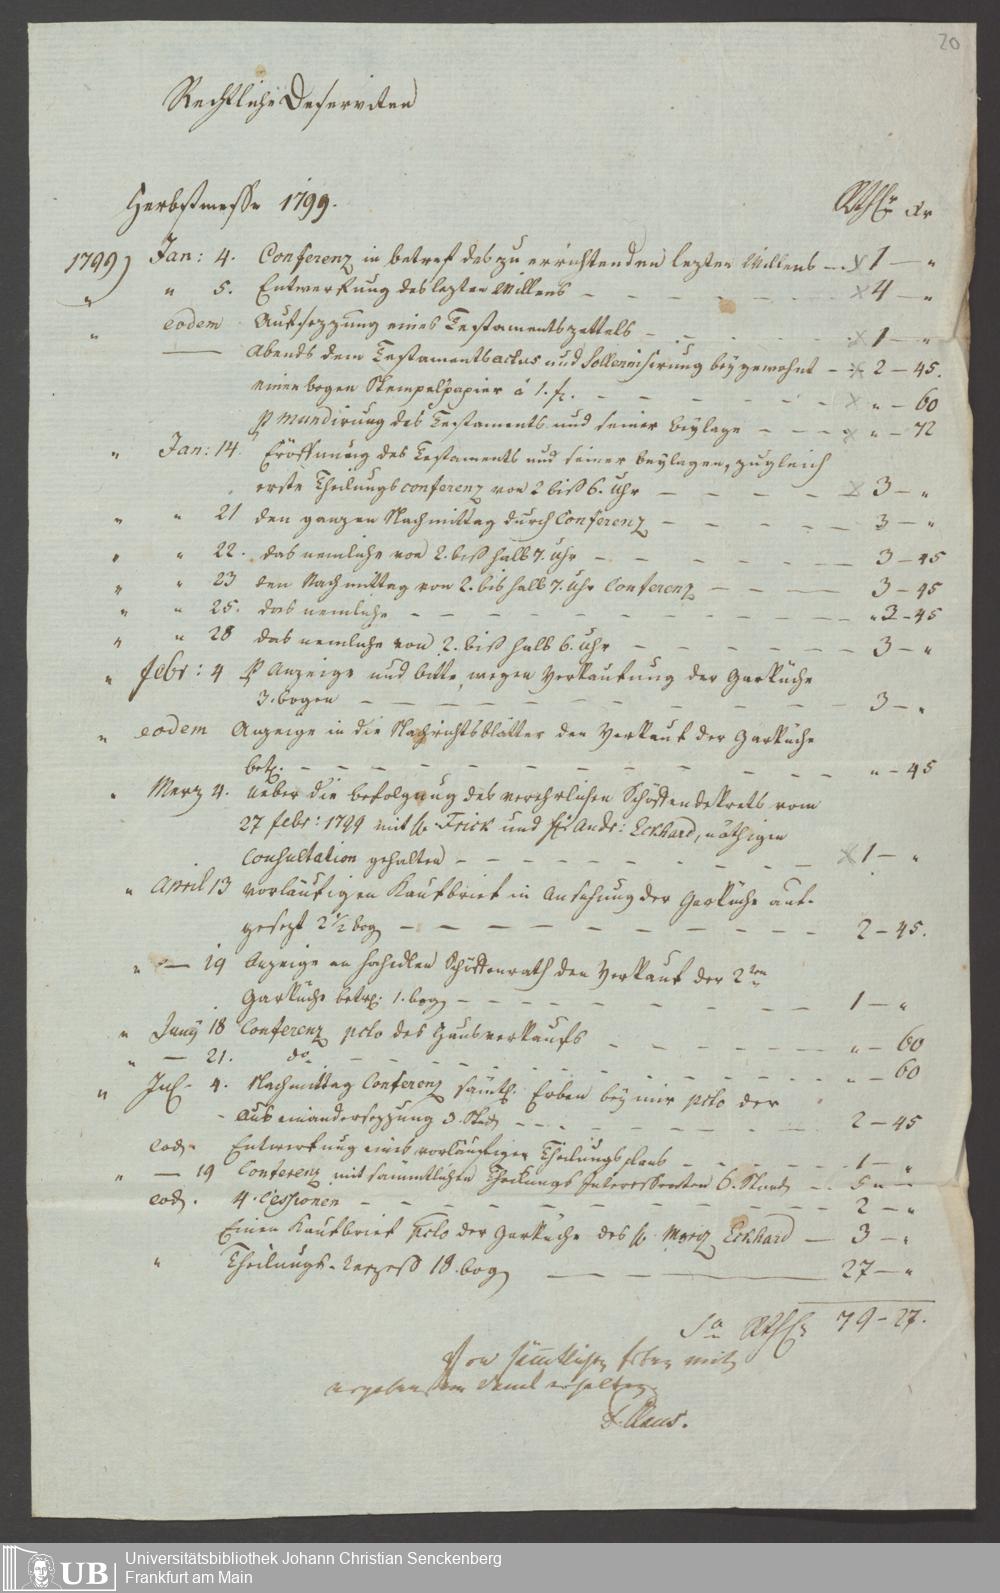 20
Rechtliche Deserviten
Herbstmesse 1799.
Rthlr Xr
1799) Jan: 4. Conferenz in betref des zu errichtenden lezten Willens — 1 — "
" " 5. Entwerfung des lezten Willens — 4 — "
" eodem Aufsezzung eines Testamentszettels — 1 — "
— Abends dem Testamentsactus und Sollennisirung beygewohnt — 2 — 45.
einen bogen Stempelpapier á 1. f. — " — 60
p mundirung des Testaments und seiner beylage — " — 72
" Jan: 14. Eröffnung des Testaments und seiner beylagen, zugleich
erste Theilungsconferenz von 2 biß 6. Uhr — 3 — "
" " 21 den ganzen Nachmittag durch Conferenz — 3 — "
" " 22. das nemliche von 2. biß halb 7. Uhr — 3 — 45
" " 23 den Nachmittag von 2. bis halb 7. Uhr Conferenz — 3 — 45
" " 25. das nemliche — 3 — 45
" " 28 das nemliche von 2. biß halb 6. Uhr — 3 — "
" febr: 4 p Anzeige und bitte, wegen Verkaufung der Garküche
3. bogen — 3 — "
" eodem Anzeige in die Nachrichtsblätter den Verkauf der Garküche
betr. — " — 45
" Merz 4. Ueber die befolgung des verehrlichen Schöffendekrets vom
27 febr: 1799 mit H. Frick und H. Andr: Eckhard, nöthigen
Consultation gehalten — 1 — "
" April 13 vorläufigen Kaufbrief in Ansehung der Garküche auf-
gesezt 2 1/2 bog — 2 — 45.
" — 19 Anzeige an hochedlen Schöffenrath den Verkauf der 2ten
Garküche betr. 1. bog — 1 — "
" Juny 18 Conferenz pcto des Hausverkaufs — " — 60
" — 21. do — " — 60
" Jul. 4. Nachmittag Conferenz sämtl. Erben bey mir pcto der
Auseinandersezzung 3. Std — 2 — 45
eod. Entwerfung eines vorläufigen Theilungsplans — 1 — "
" — 19 Conferenz mit sämmtlichen Theilungs Interessenten 6. Stund — 5 — "
eod. 4. Cessionen — 2 — "
Einen Kaufbrief pcto der Garküche des H. Moriz Eckhard — 3 — "
" Theilungs-Rezess 18. bog — 27 — "
Sa Rthlr 79 — 27.
Von sämtlichen Erben mit
ergebenstem Dank erhalten
Universitätsbibliothek Johann Christian Senckenberg
Frankfurt am Main
UB